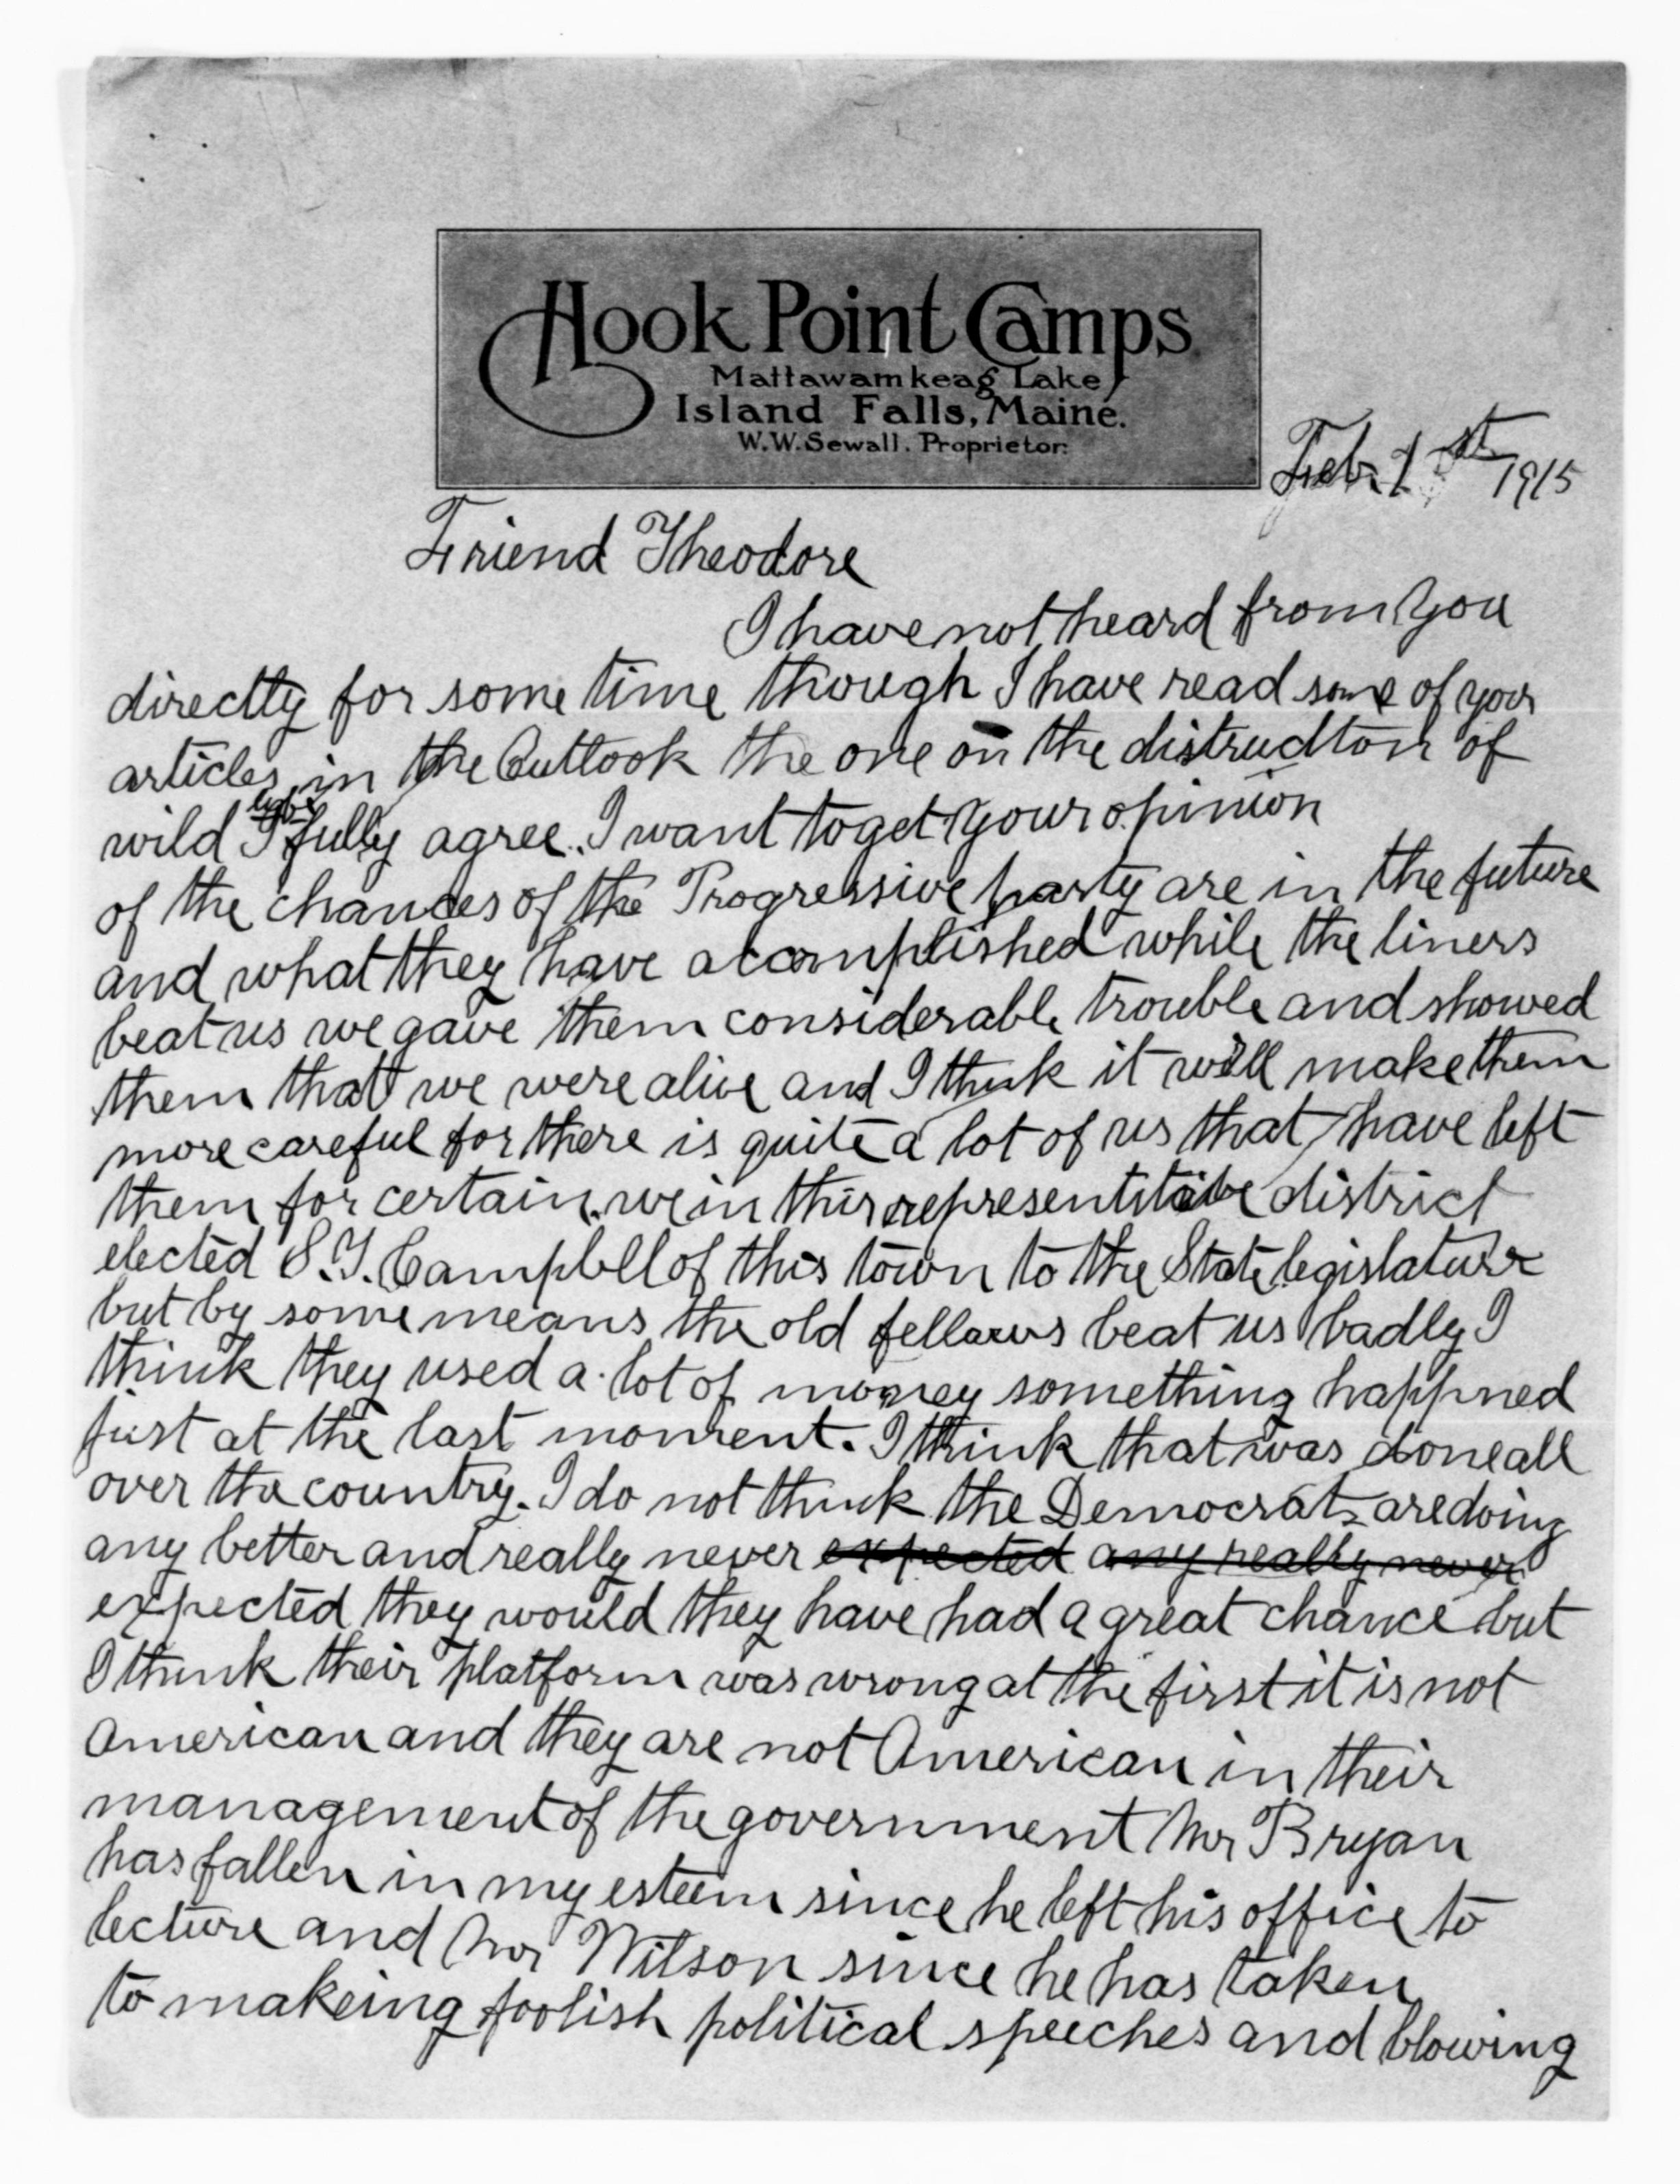 Hook Point Camps
Mattawamkeag Lake
Island Falls, Maine.
W.W. Sewall. Proprietor.
Feb. 1st 1915
Friend Theodore
I have not heard from you
directly for some time though I have read some of your
articles in the Outlook the one on the distruction of
wild life I fully agree. I want to get your opinion
of the chances of the Progressive party are in the future
and what they have acomplished while the liners
beat us we gave them considerable trouble and showed
them that we were alive and I think it will make them
more careful for there is quite a lot of us that have left
them for certain. we in this representitive district
elected S.Y. Campbell of this town to the State legislature
but by some means the old fellows beat us badly I
think they used a lot of money something happned
just at the last moment. I think that was done all
over the country. I do not think the Democrats are doing
any better and really never expected any really never
expected they would they have had a great chance but
I think their platform was wrong at the first it is not
American and they are not American in their
management of the government Mr Bryan
has fallen in my esteem since he left his office to
lecture and Mr Wilson since he has taken
to makeing foolish political speeches and blowing